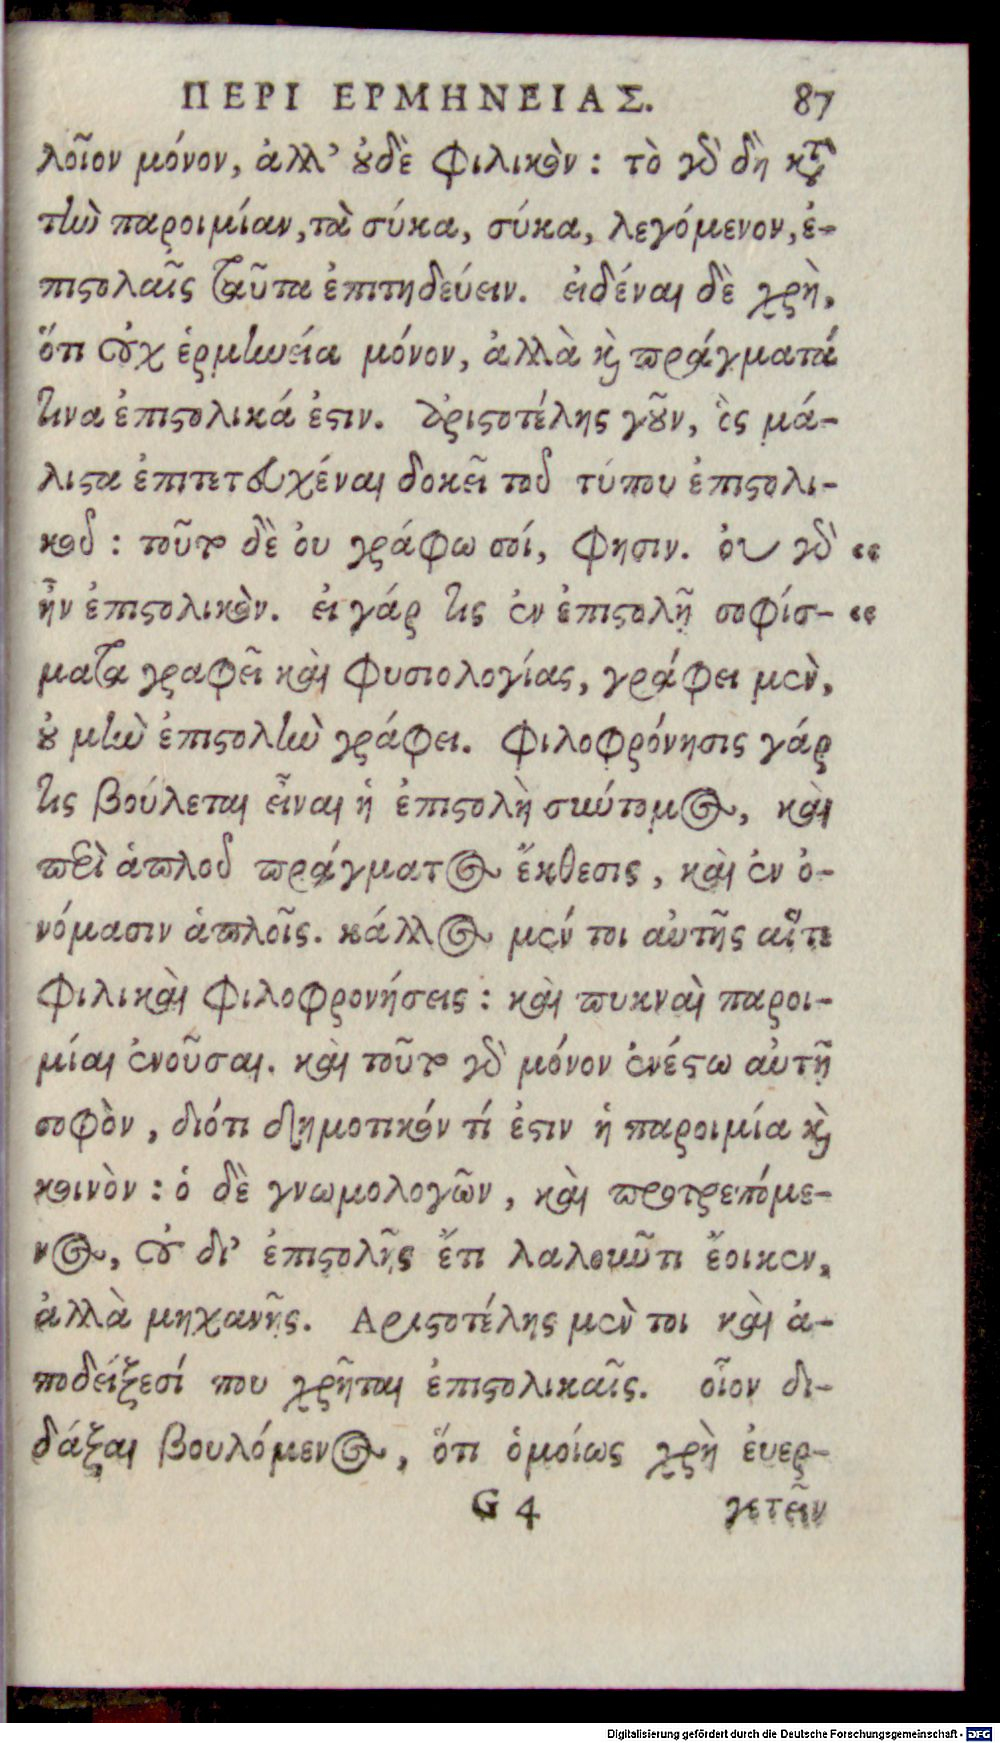 ΠΕΡΙ ΕΡΜΗΝΕΙΑΣ. 87
λοῖον μόνον, ἀλλ' ȣ̓δὲ φιλικὸν : τὸ γὸ δὴ κτ
τὼ παροιμίαν, τὰ σύκα, σύκα, λεγόμενον, ἐ-
πιςολαῖς ταῦτα ἐπιτηδεύειν. εἰδέναι δὲ χρὴ,
ὅτι οὐχ ἑρμηνεία μόνον, ἀλλὰ κỳ πράγματά
τινα ἐπιςολικά ἐςιν. Ἀριςοτέλης γȣ͂ν, ὃς μά-
λιςα ἐπιτετευχέναι δοκεῖ τοῦ τύπου ἐπιςολι-
κοῦ : τοῦτο δὲ ȣ γράφω σοί, φησιν. ȣ̓ γὸ “
ἦν ἐπιςολικὸν. εἰ γάρ τις ἐν ἐπιςολῇ σοφίσ- “
ματα γραφεῖ καὶ φυσιολογίας, γράφει μὲν,
ȣ̓ μὴν ἐπιςολὴν γράφει. φιλοφρόνησις γάρ
τις βούλεται εἶναι ἡ ἐπιςολὴ σκύτομος, καὶ
περὶ ἁπλοῦ πράγματος ἔκθεσις, καὶ ἐν ὀ-
νόμασιν ἁπλοῖς. κάλλος μέν τοι αὐτῆς αἵτε
φιλικαὶ φιλοφρονήσεις : καὶ πυκναὶ παροι-
μίαι ἐνοῦσαι. καὶ τοῦτο γὸ μόνον ἐνέςω αὐτῇ
σοφὸν, διότι δημοτικόν τί ἐςιν ἡ παροιμία κỳ
κοινὸν : ὁ δὲ γνωμολογῶν, καὶ προτρεπόμε-
νος, οὐ δι' ἐπιςολῆς ἔτι λαλοιῦτι ἔοικεν,
ἀλλὰ μηχανῆς. Αριςοτέλης μὲν τοι καὶ ἀ-
ποδείξεσί που χρῆται ἐπιςολικαῖς. οἷον δι-
δάξαι βουλόμενος, ὅτι ὁμοίως χρὴ ἐυερ-
G 4 γετεῖν
Digitalisierung gefördert durch die Deutsche Forschungsgemeinschaft - DFG